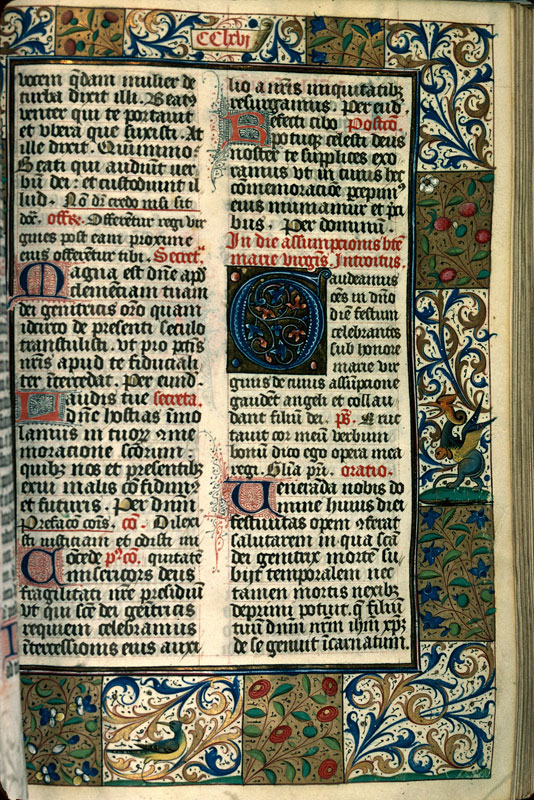 CClxvi
vocem q̄dam mulier de
turba dixit illi. Beat9
venter qui te portauit
et vbera que suxisti. At
ille dixit. Quinimmo:
Beati qui audiūt uer
bū dei: et custodiunt il
lud. Nō dr̄ credo nisi sit
dōc. offer. Offerētur regi vir
gines post eam proxime
eius offerētur tibi. Secret.
Magna est dn̄e apd̄
clemēciam tuam
dei genitricis orō quam
idcirco de presenti seculo
transtulisti. vt pro pctīs
nr̄is apud te fiduciali
ter ītercedat. Per eund.
Laudis tue secreta.
dn̄e hostias īmo
lamus in tuorȝ ↄme
moracione scōrum:
quibȝ nos et presentibȝ
exui malis cōfidim9
et futuris. Per dn̄m.
Prefaco cōis. cō. Dilexi
sti iusticiam et odisti ini
Cōcede pꝰcō. quitatē
misericors deus
fragilitati nr̄e presidiū
vt qui scē dei geītricis
requiem celebramus
ītercessionis eius auxi
lio a nr̄is iniquitatibȝ
resurgamus. Per eūd.
Refecti cibo Postcō.
potuqȝ celesti deus
noster te supplices exo
ramus vt in cuius hec
cōmemoracōe percepim9
eius muniamur et pci
bus. Per dominū.
In die assumpcionis bt̄e
marie virgīs. Introitus.
Gaudeamus
oēs in dn̄o
diē festum
celebrantes
sub honore
marie vir
ginis de cuius assūpcione
gaudēt angeli et collau
dant filiū dei. ps. Eruc
tauit cor meū verbum
bonū dico ego opera mea
regi. Glia pri. oratio.
Ueneranda nobis do
mine huius diei
festiuitas opem ↄferat
salutarem in qua scā
dei genitrix mortē su
bijt temporalem nec
tamen mortis nexibȝ
deprimi potuit. q̄ filiū
tuū dn̄m nr̄m ihm xp̄ȝ
de se genuit īcarnatum.